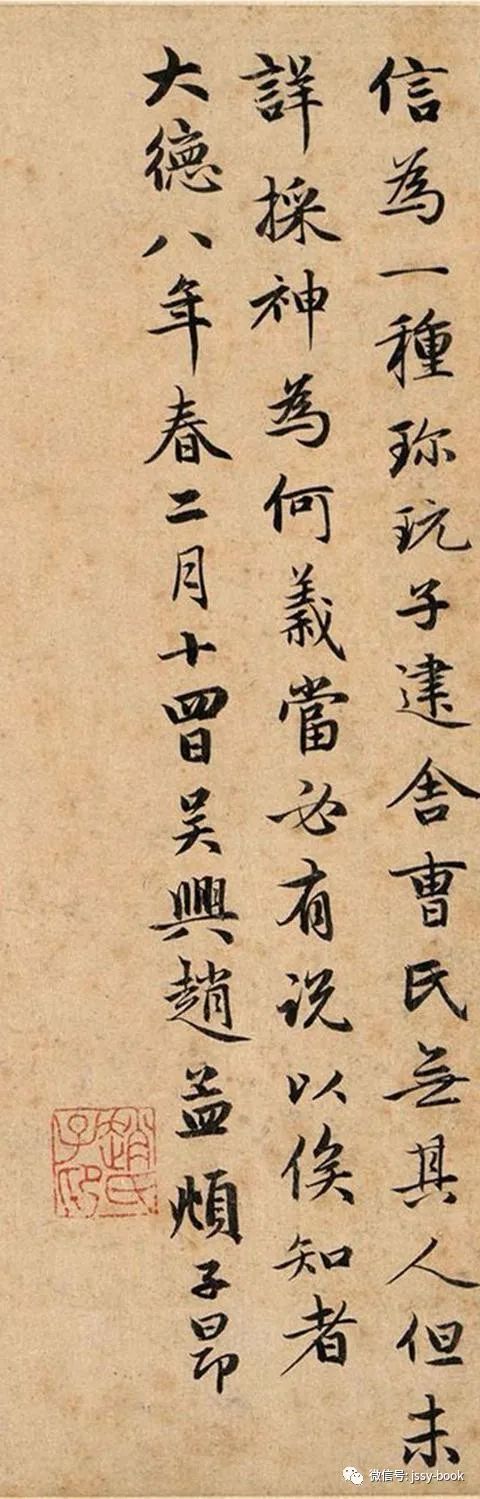 信為一種珎玩子建舍曹氏無其人但未
詳採神為何義當必有说以俟知者
大德八年春二月十四日吴興趙孟頫子昂
趙氏子昂
微信号: jssy-book